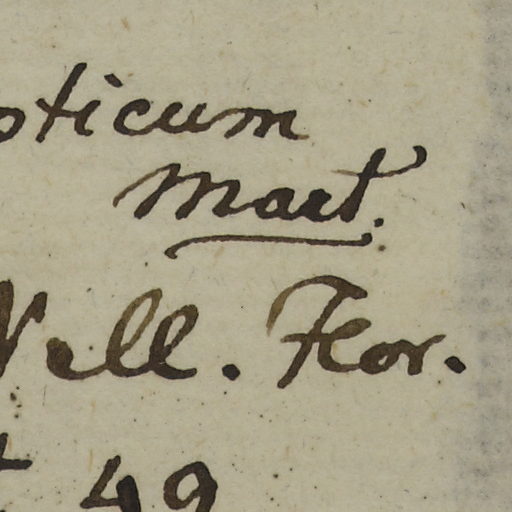 oticum
Mart.
Vell. Flor.
t 49